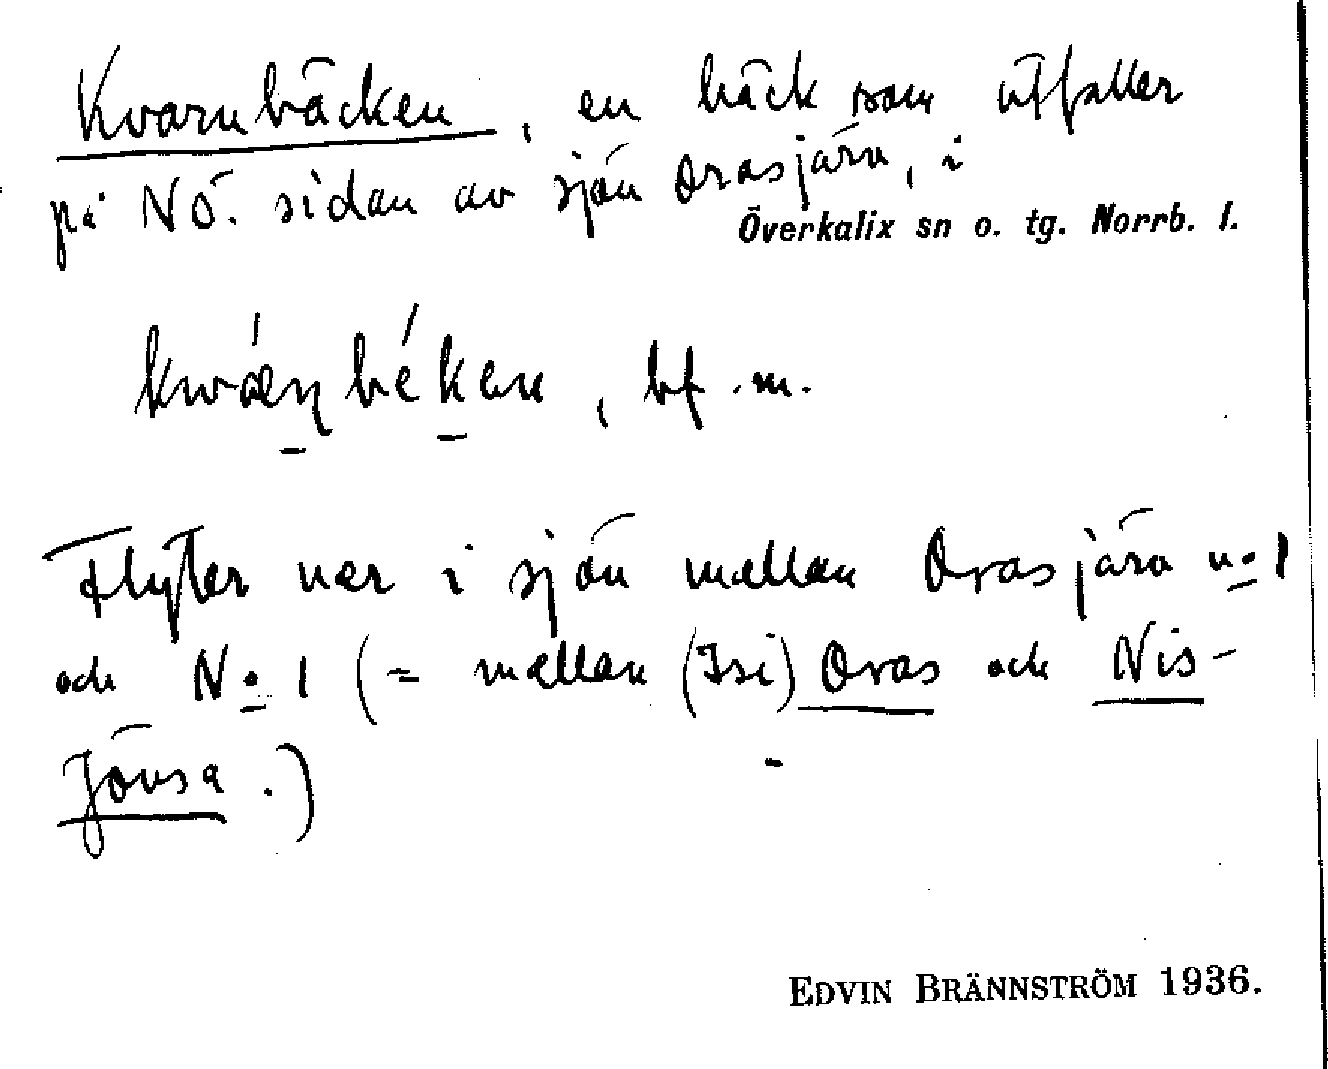 Kvarnbäcken, en bäck som utfaller
på NÖ. sidan av sjön Orasjärv, i
Överkalix sn o. tg. Norrb. l.
bf. m.
Flyter ner i sjön mellan Orasjärv n:o 1
och N:o 1 (= mellan (Isi) Oras och Nis-
jönsa.)
EDVIN BRÄNNSTRÖM 1936.